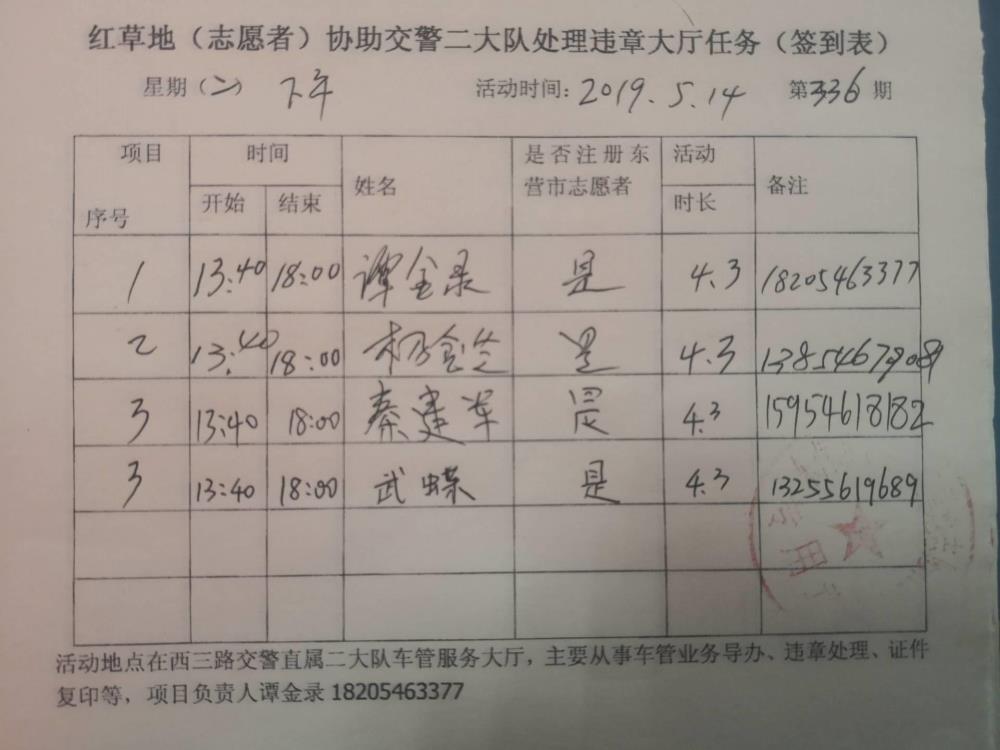 红草地（志愿者）协助交警二大队处理违章大厅任务（签到表）
星期（二） 下午 活动时间：2019.5.14 第336期
项目 时间 姓名 是否注册东 活动 备注
营市志愿者
序号 开始 结束 时长
1 13:40 18:00 谭金录 是 4.3 18205463377
2 13:40 18:00 杨金兰 是 4.3
3 13:40 18:00 秦建军 是 4.3 15954618182
3 13:40 18:00 武蝶 是 4.3 13255619689
活动地点在西三路交警直属二大队车管服务大厅，主要从事车管业务导办、违章处理、证件
复印等，项目负责人谭金录 18205463377